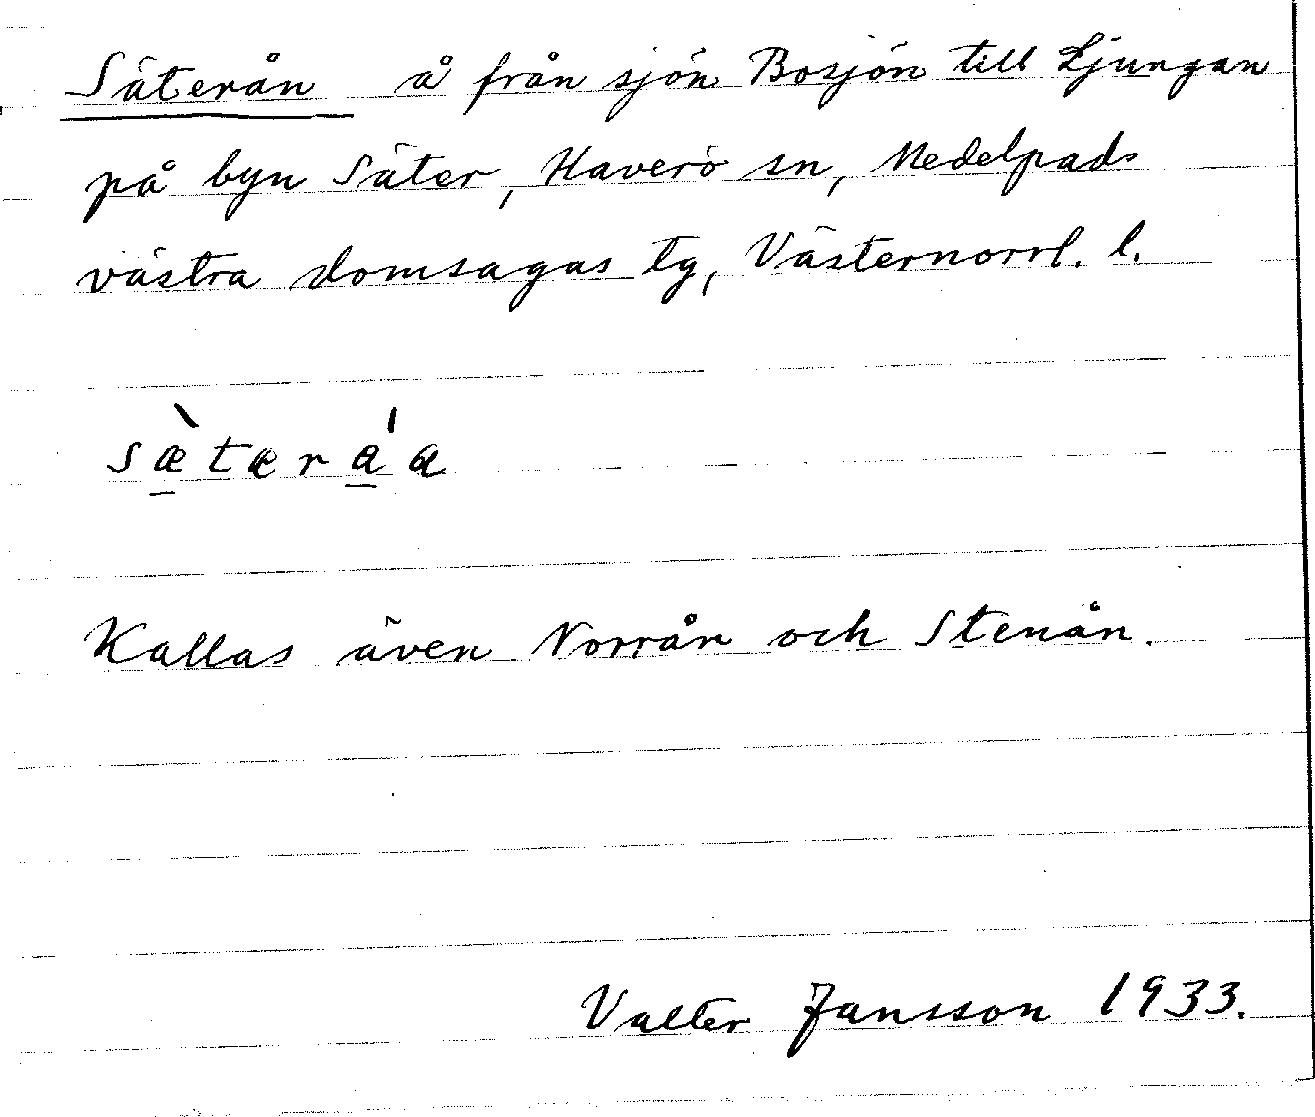 Säterån å från sjön Bosjön till Ljungan
på byn Säter, Haverö sn, Medelpads
västra domsagas tg, Västernorrl. l.
sæ̠̀tærá̠a
Kallas även Norrån och Stenån.
Valter Jansson 1933.